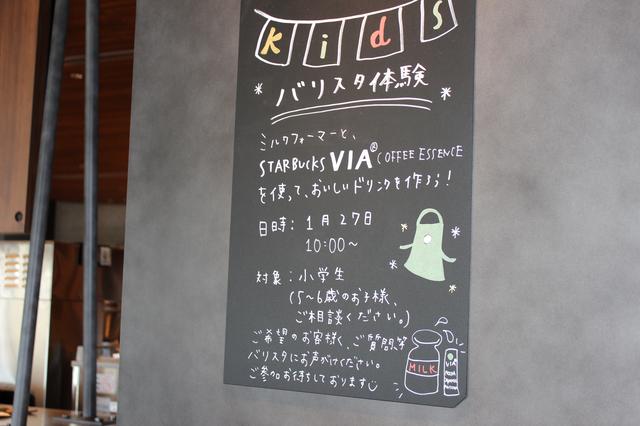 kids
バリスタ体験
ミルクフォーマーと、
STARBUCKS VIA® COFFEE ESSENCE
を使って、おいしいドリンクを作ろう!
日時: 1月27日
10:00~
対象:小学生
(5~6歳のお子様、
ご相談ください。)
ご希望のお客様、ご質問等
バリスタにお声がけください。
ご参加お待ちしております
MILK
VIA